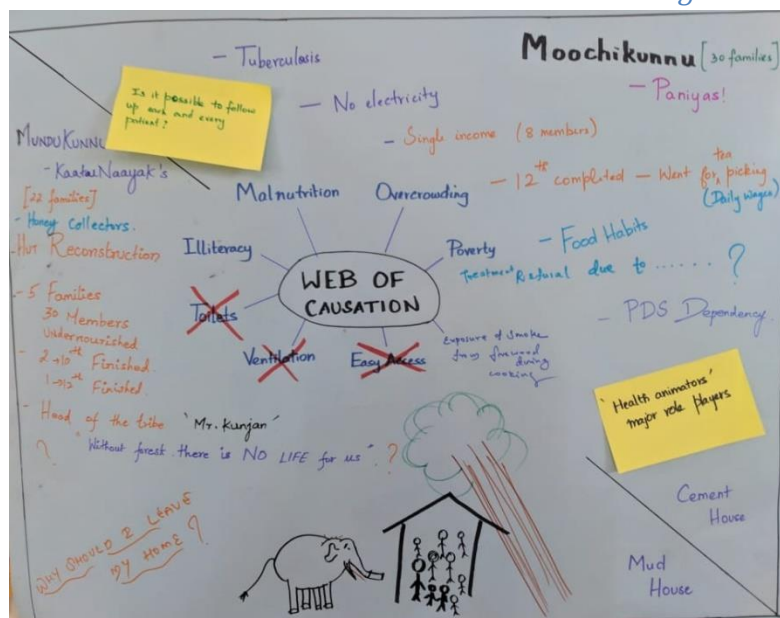 Moochikunnu [30 families]
- Paniyas!
- Tuberculosis
- No electricity
- Single income (8 members)
- 12th completed - Went for tea picking
(Daily wages)
- Food Habits
Treatment Refusal due to ...... ?
- PDS Dependency
Is it possible to follow
up each and every
patient?
MUNDUKUNNU
- Kaatu Naayak's
[22 families]
- Honey Collectors.
- Hut Reconstruction
- 5 Families
30 Members
undernourished
- 2→10th Finished.
1→12th Finished.
- Head of the tribe 'Mr. Kunjan'
? "Without forest there is NO LIFE for us" ?
WHY SHOULD I LEAVE
MY HOME ?
WEB OF
CAUSATION
Malnutrition
Overcrowding
Illiteracy
Poverty
Toilets
Ventilation
Easy Access
Exposure of smoke
from firewood
during
cooking
"Health animators"
major role players
Cement
House
Mud
House